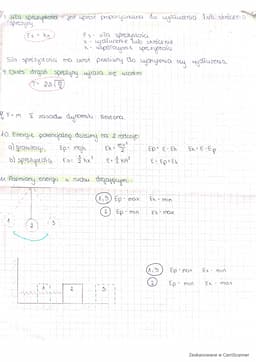 siła sprężystości - jest wprost proporcjonalna do wydłużenia lub skrócenia
sprężyny
Fs = kx
Fs - siła sprężystości
x - wydłużenie lub skrócenie
k - współczynnik sprężystości
Siła sprężystości ma zwrot przeciwny do wydłużenia
Okres drgań sprężyny wyraża się wzorem
T = 2π √m/k
II zasada dynamiki Newtona
10. Energię potencjalną dzielimy na 2 rodzaje:
a) grawitacji, Ep = mgh Ek = mv²/2 Ep = E - Ek Ek = E - Ep
b) sprężystości Es = ½ kx² E = ½ kA² E = Ep + Ek
11. Przemiany energii w ruchu drgającym
1,3 Ep - max Ek - min
2 Ep - min Ek - max
1 2 3
1,3 Ep - max Ek - min
2 Ep - min Ek - max
1 2 3
Zeskanowane w CamScanner